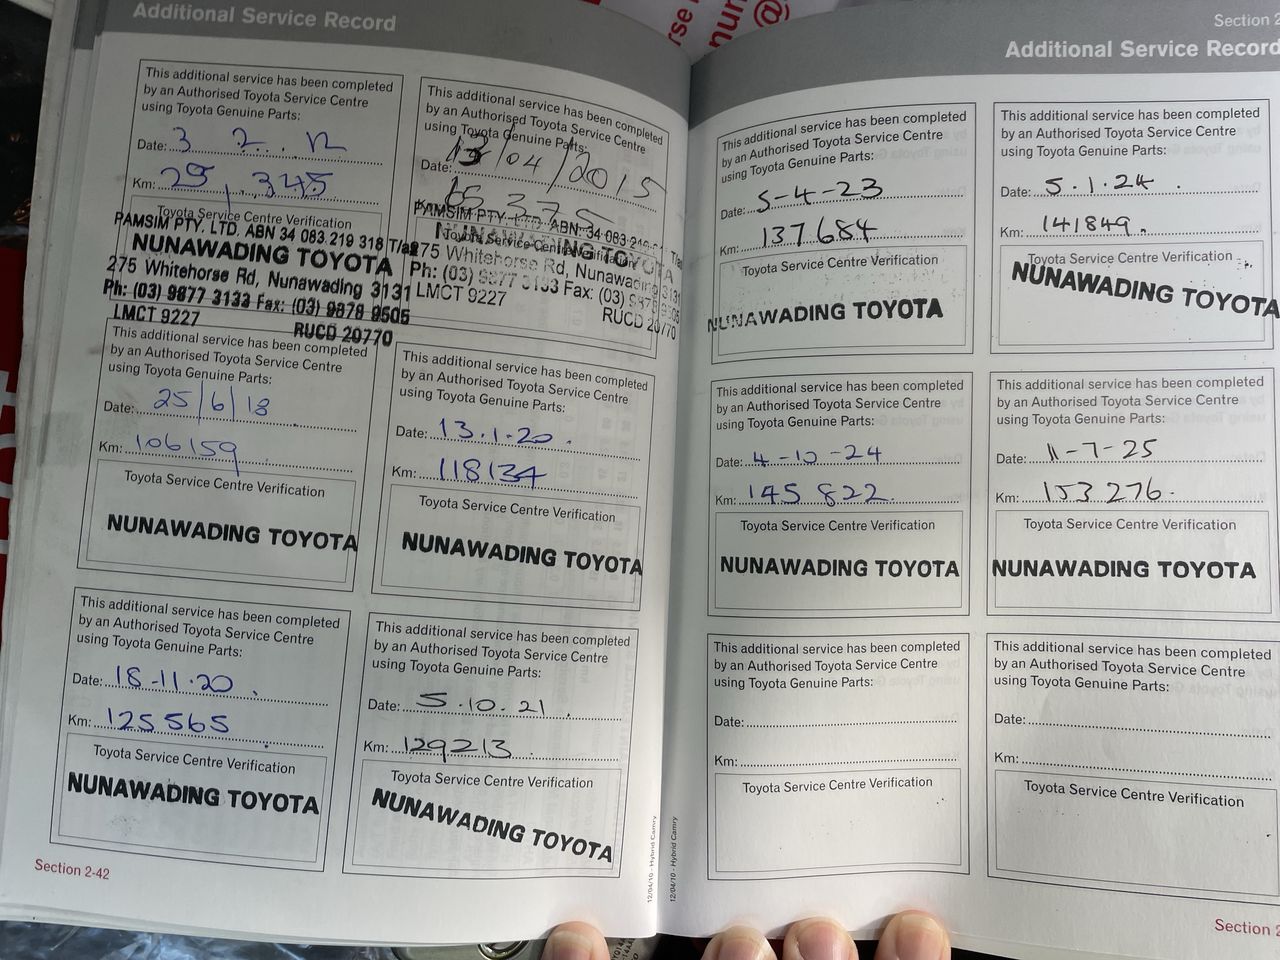 Additional Service Record
This additional service has been completed
by an Authorised Toyota Service Centre
using Toyota Genuine Parts:
Date: 3 2 . 12
Km: 29,345
Toyota Service Centre Verification
PAMSIM PTY. LTD. ABN 34 083 219 318 T/as
NUNAWADING TOYOTA
275 Whitehorse Rd, Nunawading 3131
Ph: (03) 9877 3133 Fax: (03) 9878 9505
LMCT 9227 RUCD 20770
This additional service has been completed
by an Authorised Toyota Service Centre
using Toyota Genuine Parts:
Date: 13/04/2015
Km: 65 375
Toyota Service Centre Verification
PAMSIM PTY. LTD. ABN 34 083
NUNAWADING TOYOTA
275 Whitehorse Rd, Nunawading 3131
Ph: (03) 9877 3133 Fax: (03) 9878 9505
LMCT 9227 RUCD 20770
This additional service has been completed
by an Authorised Toyota Service Centre
using Toyota Genuine Parts:
Date: 25/6/18
Km: 106159
Toyota Service Centre Verification
NUNAWADING TOYOTA
This additional service has been completed
by an Authorised Toyota Service Centre
using Toyota Genuine Parts:
Date: 13.1.20.
Km: 118134
Toyota Service Centre Verification
NUNAWADING TOYOTA
This additional service has been completed
by an Authorised Toyota Service Centre
using Toyota Genuine Parts:
Date: 18-11-20.
Km: 125565
Toyota Service Centre Verification
NUNAWADING TOYOTA
This additional service has been completed
by an Authorised Toyota Service Centre
using Toyota Genuine Parts:
Date: 5.10.21.
Km: 129213
Toyota Service Centre Verification
NUNAWADING TOYOTA
Section 2-42
12/04/10 - Hybrid Camry
12/04/10 - Hybrid Camry
Section 2
Additional Service Record
This additional service has been completed
by an Authorised Toyota Service Centre
using Toyota Genuine Parts:
Date: 5-4-23
Km: 137684
Toyota Service Centre Verification
NUNAWADING TOYOTA
This additional service has been completed
by an Authorised Toyota Service Centre
using Toyota Genuine Parts:
Date: 5.1.24.
Km: 141849.
Toyota Service Centre Verification
NUNAWADING TOYOTA
This additional service has been completed
by an Authorised Toyota Service Centre
using Toyota Genuine Parts:
Date: 4-10-24
Km: 145 822
Toyota Service Centre Verification
NUNAWADING TOYOTA
This additional service has been completed
by an Authorised Toyota Service Centre
using Toyota Genuine Parts:
Date: 11-7-25
Km: 153 276.
Toyota Service Centre Verification
NUNAWADING TOYOTA
This additional service has been completed
by an Authorised Toyota Service Centre
using Toyota Genuine Parts:
Date:
Km:
Toyota Service Centre Verification
This additional service has been completed
by an Authorised Toyota Service Centre
using Toyota Genuine Parts:
Date:
Km:
Toyota Service Centre Verification
Section 2